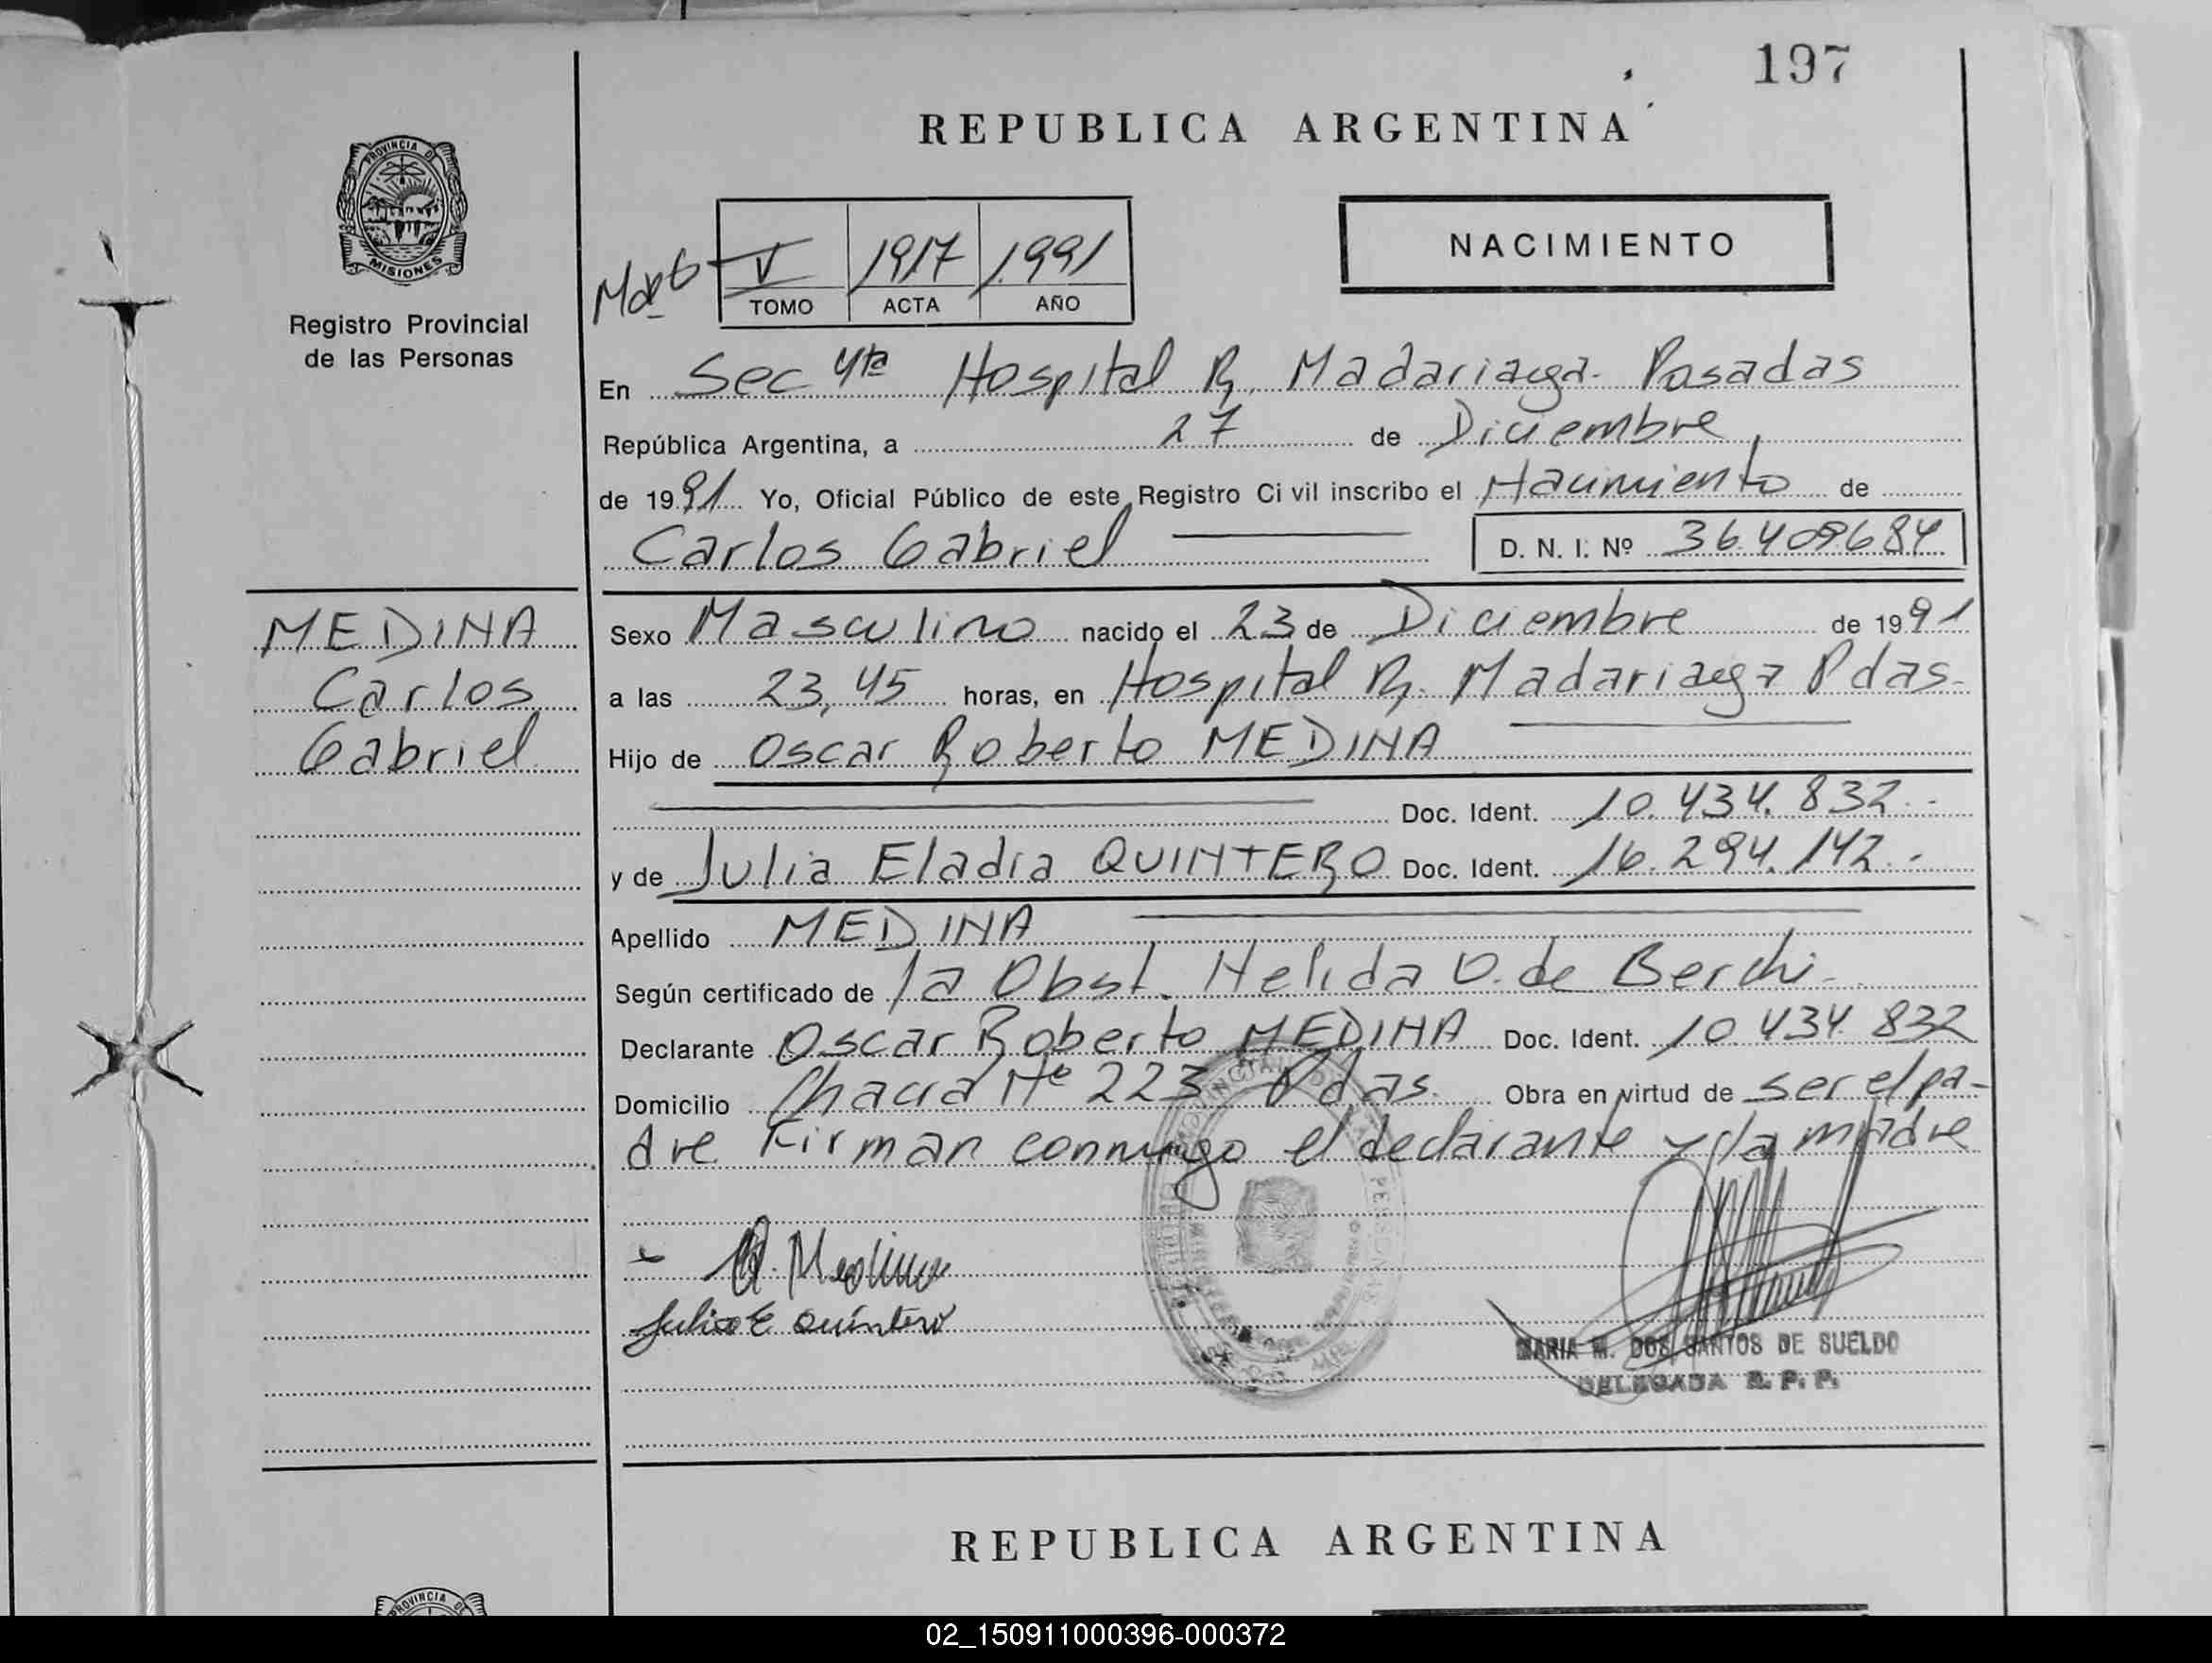 197
REPUBLICA ARGENTINA
PROVINCIA DE
MISIONES
Registro Provincial
de las Personas
V 1917 1.991
TOMO ACTA AÑO
NACIMIENTO
En Sec 4ta Hospital R. Madariaga. Posadas
República Argentina, a 27 de Diciembre
de 1991 Yo, Oficial Público de este Registro Ci vil inscribo el Nacimiento de
Carlos Gabriel D. N. I. Nº
MEDINA
Carlos
Gabriel
Sexo Masculino nacido el 23 de Diciembre de 1991
a las 23,45 horas, en Hospital R. Madariaga Pdas.
Hijo de Oscar Roberto MEDINA
Doc. Ident. 10.434.832.-
y de Julia Eladia QUINTERO Doc. Ident. 16.294.142.-
Apellido MEDINA
Según certificado de la Obst. Nelida O. de Berchi.
Declarante Oscar Roberto MEDINA Doc. Ident. 10 434. 832
Domicilio Chacra Nº 223 Pdas. Obra en virtud de ser el pa-
dre Firman conmigo el declarante y la madre
Medina
Julia E Quintero
MARIA M. DOS SANTOS DE SUELDO
DELEGADA R. P. P.
REPUBLICA ARGENTINA
PROVINCIA DE
02_150911000396-000372